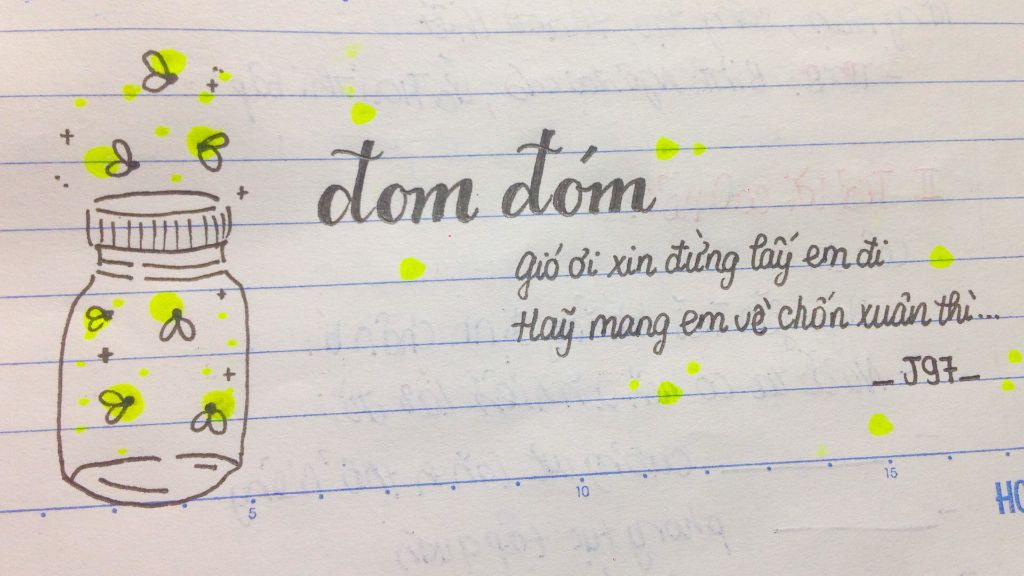 đom đóm
gió ơi xin đừng lấy em đi
Hãy mang em về chốn xuân thì...
_ J97_
5
10
15
HO